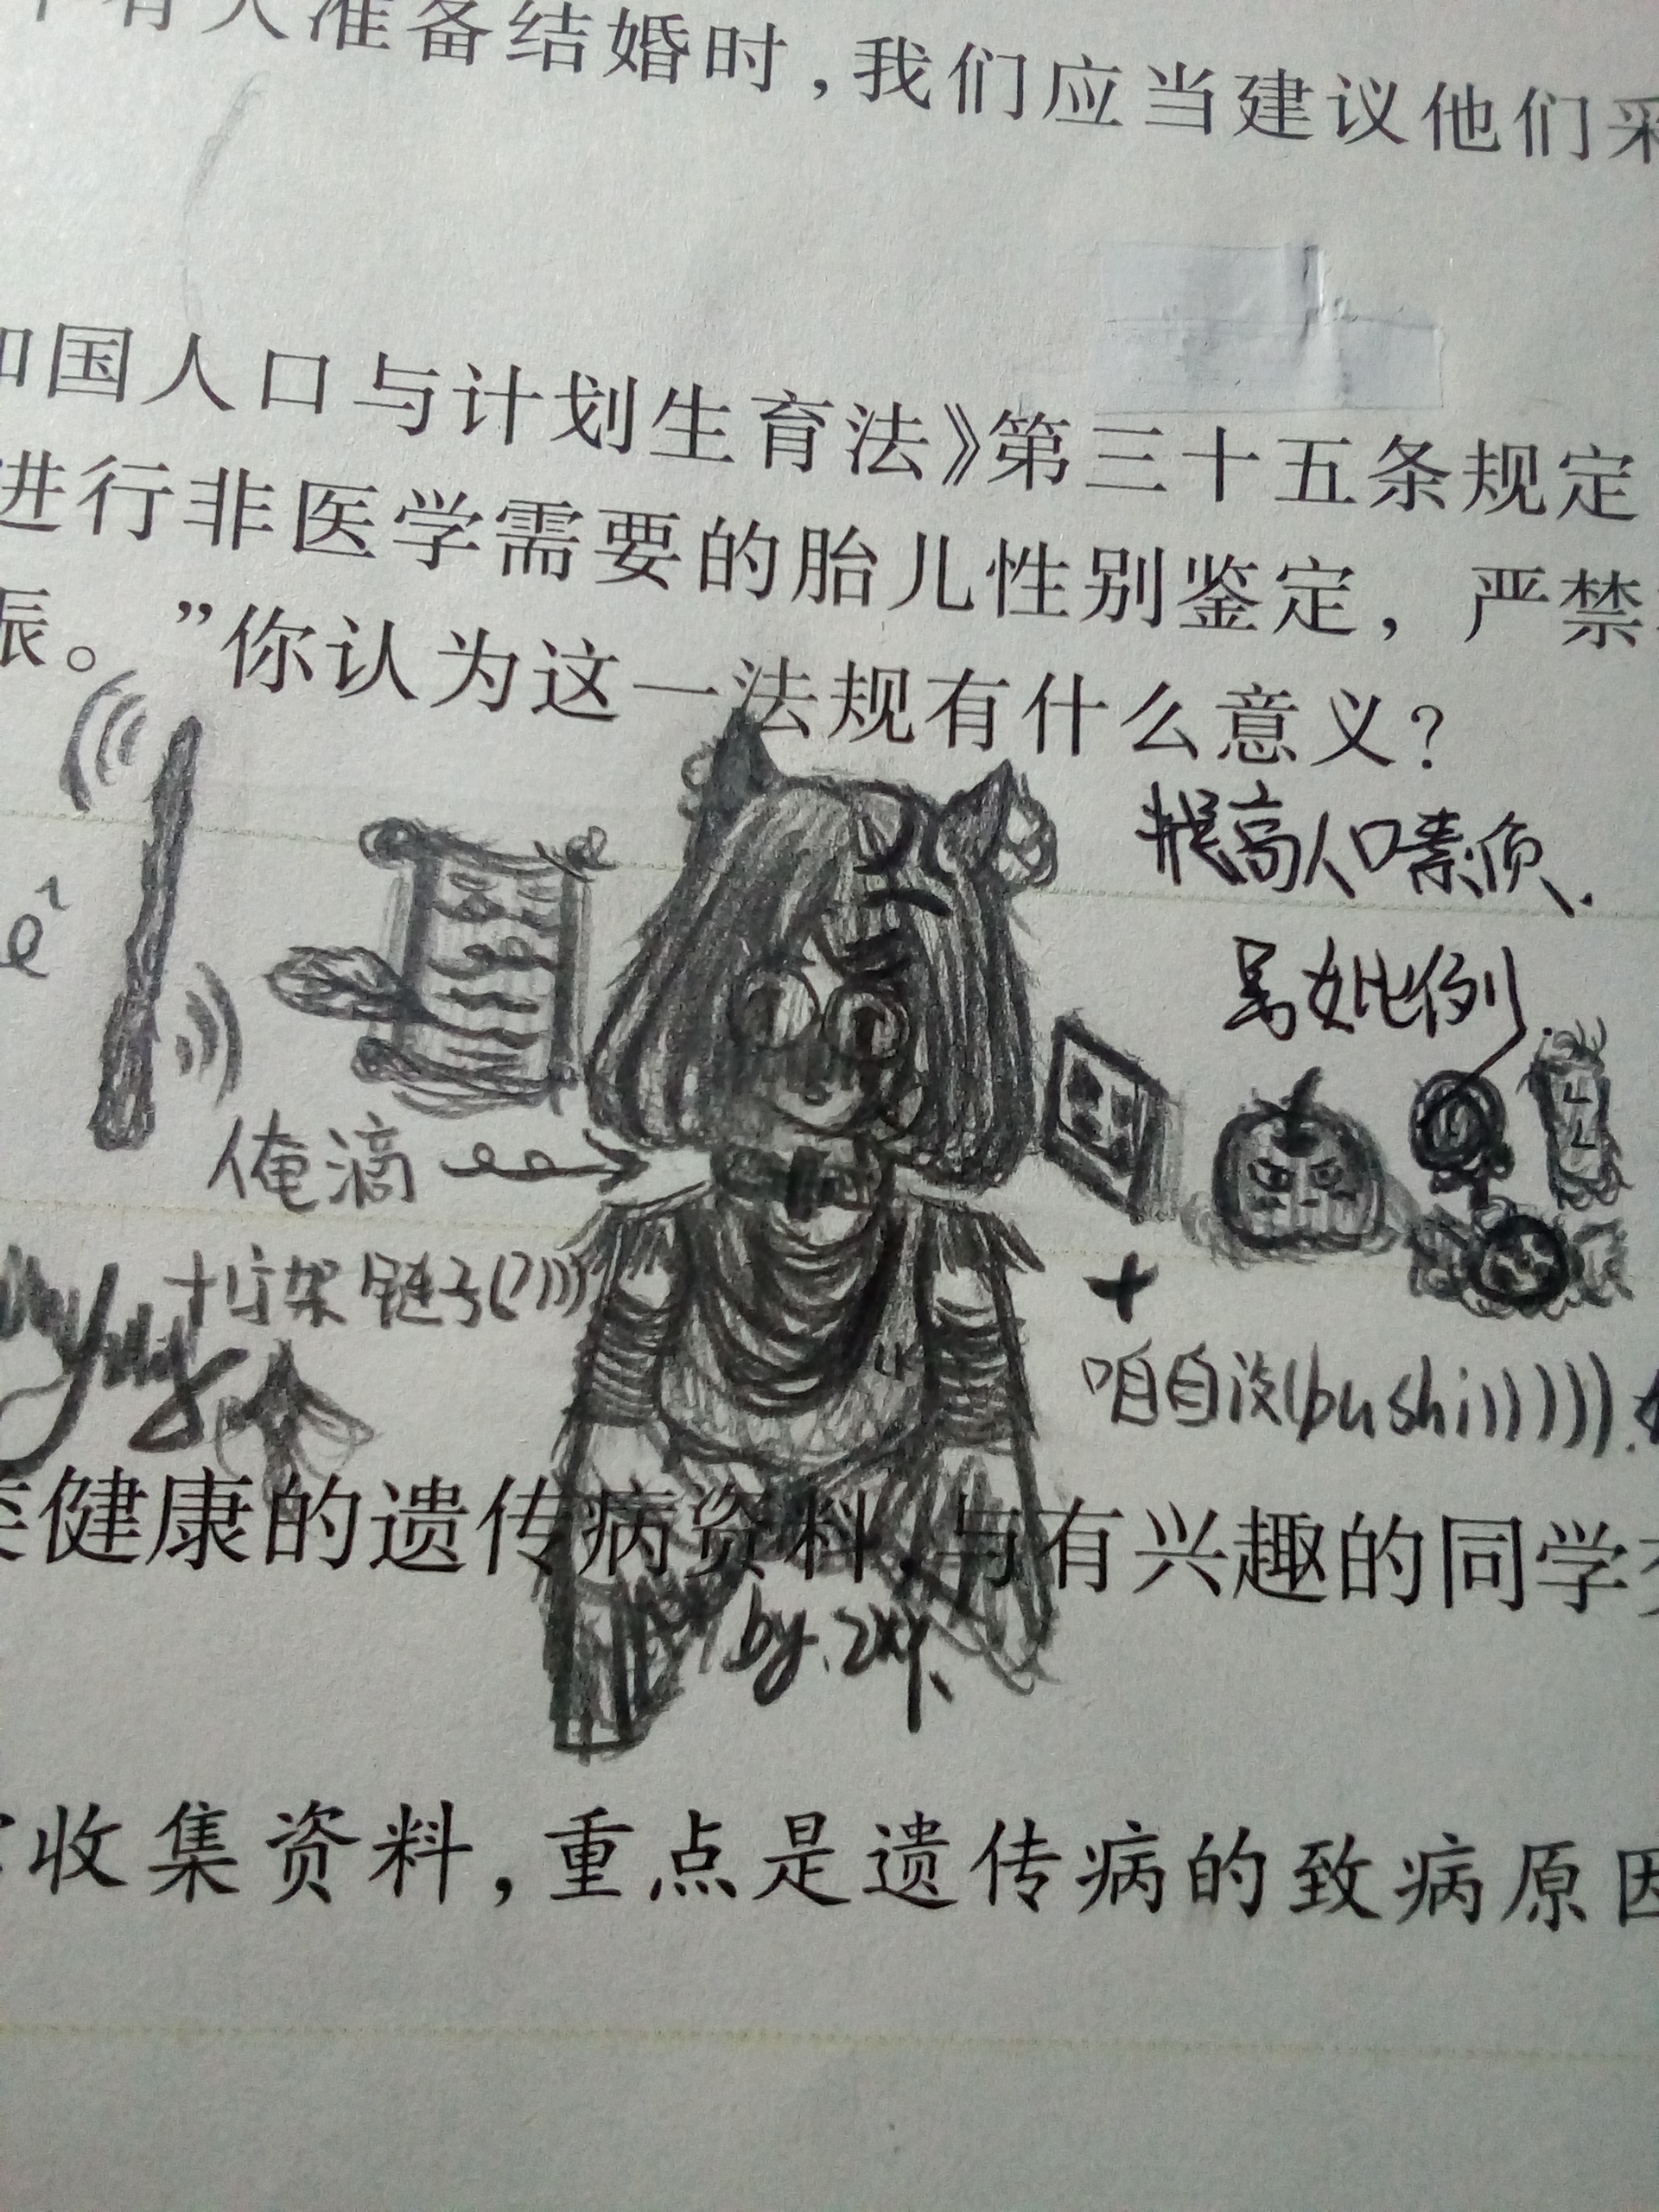 有人准备结婚时，我们应当建议他们采
和国人口与计划生育法》第三十五条规定
进行非医学需要的胎儿性别鉴定，严禁
”你认为这一法规有什么意义？
提高人口素质.
男女比例.
ê
俺滴
十字架链子(?)))
+
咱自设(bushi))))).
健康的遗传病资料，与有兴趣的同学
by.zxy.
收集资料，重点是遗传病的致病原因